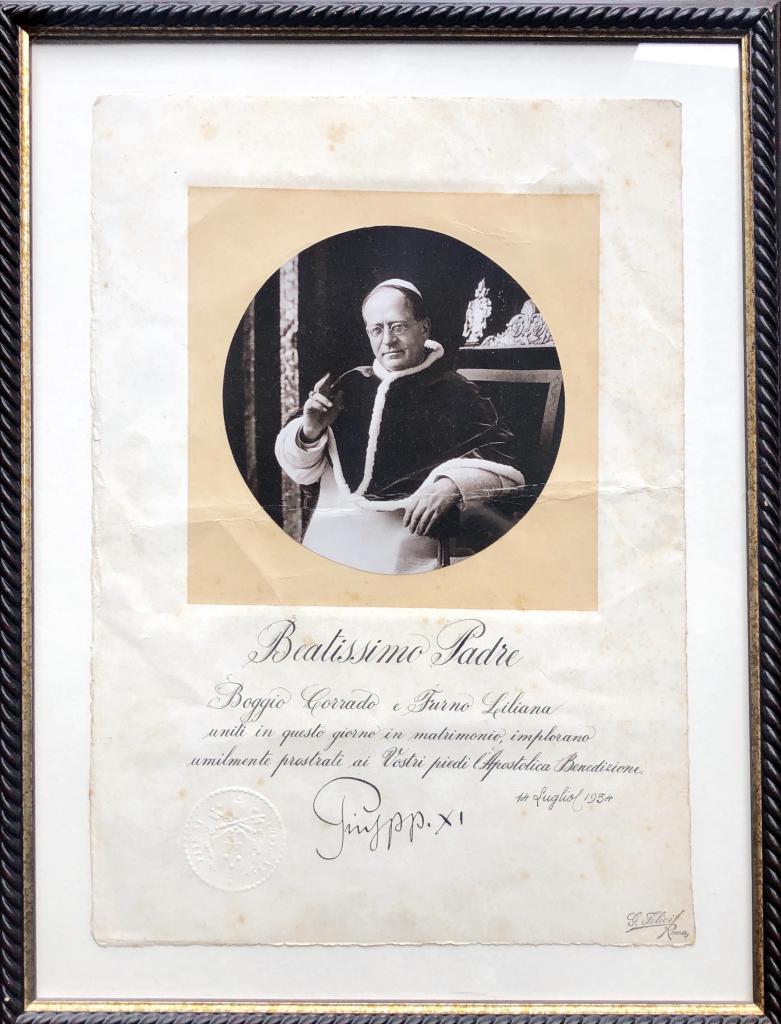 Beatissimo Padre
Boggio Corrado e Furno Liliana
uniti in questo giorno in matrimonio, implorano
umilmente prostrati ai Vostri piedi l'Apostolica Benedizione.
14 Luglio 1934
Pius pp. XI
G. Felici
Roma